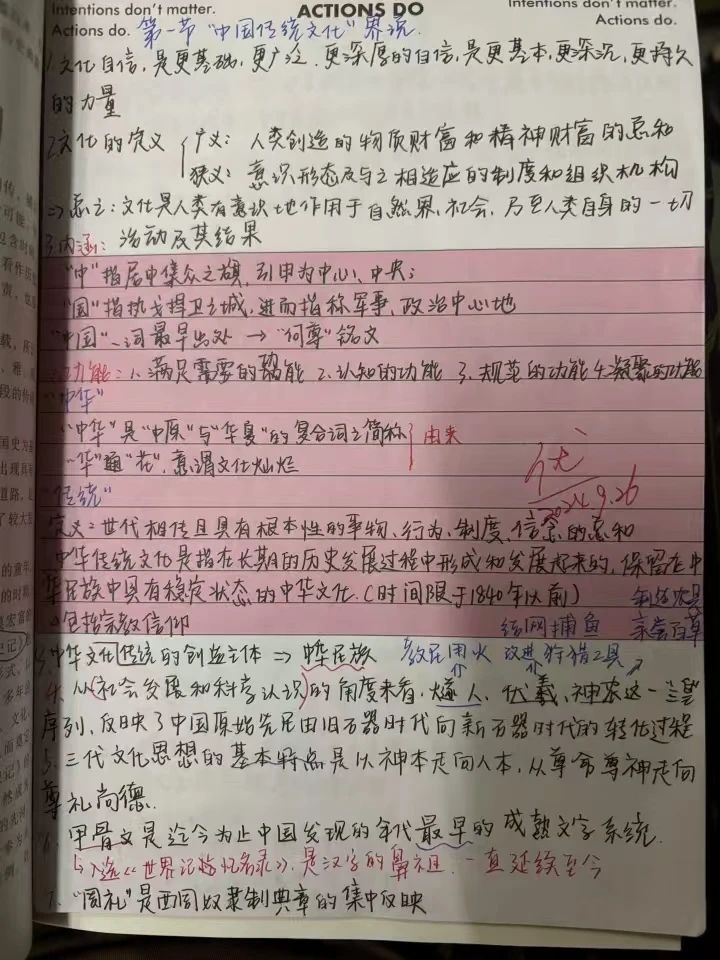 Intentions don't matter.
Actions do.
ACTIONS DO
Intentions don't matter.
Actions do.
第一节 "中国传统文化"界说.
1.文化自信,是更基础,更广泛.更深厚的自信,是更基本,更深沉,更持久
的力量
2.文化的定义 广义: 人类创造的物质财富和精神财富的总和
狭义: 意识形态及与之相适应的制度和组织机构
=>总之:文化是人类有意识地作用于自然界、社会、乃至人类自身的一切
活动及其结果
3.内涵:
"中"指居中集众之旗,引申为中心、中央;
"国"指执戈捍卫之城,进而指称军事、政治中心地
"中国"一词最早出处 → "何尊"铭文
功能: 1.满足需要的功能 2.认知的功能 3.规范的功能 4.凝聚的功能
"中华"
"中华"是"中原"与"华夏"的复合词之简称 由来
"华"通"花",意谓文化灿烂
优
2024.9.26
"传统"
定义:世代相传且具有根本性的事物、行为、制度、信念的总和
中华传统文化是指在长期的历史发展过程中形成和发展起来的,保留在中
华民族中具有稳定状态的中华文化.(时间限于1840年以前)
包括宗教信仰
结网捕鱼
亲尝百草
中华文化传统的创造主体 => 中华民族
教民用火 改进狩猎工具
4.从社会发展和科学认识的角度来看,燧人、伏羲、神农这一三皇
序列,反映了中国原始先民由旧石器时代向新石器时代的转化过程
5.三代文化思想的基本特点是从神本走向人本,从尊命尊神走向
尊礼尚德.
6.甲骨文是迄今为止中国发现的年代最早的成熟文字系统.
↳入选《世界记忆名录》,是汉字的鼻祖.一直延续至今
7."周礼"是西周奴隶制典章的集中反映